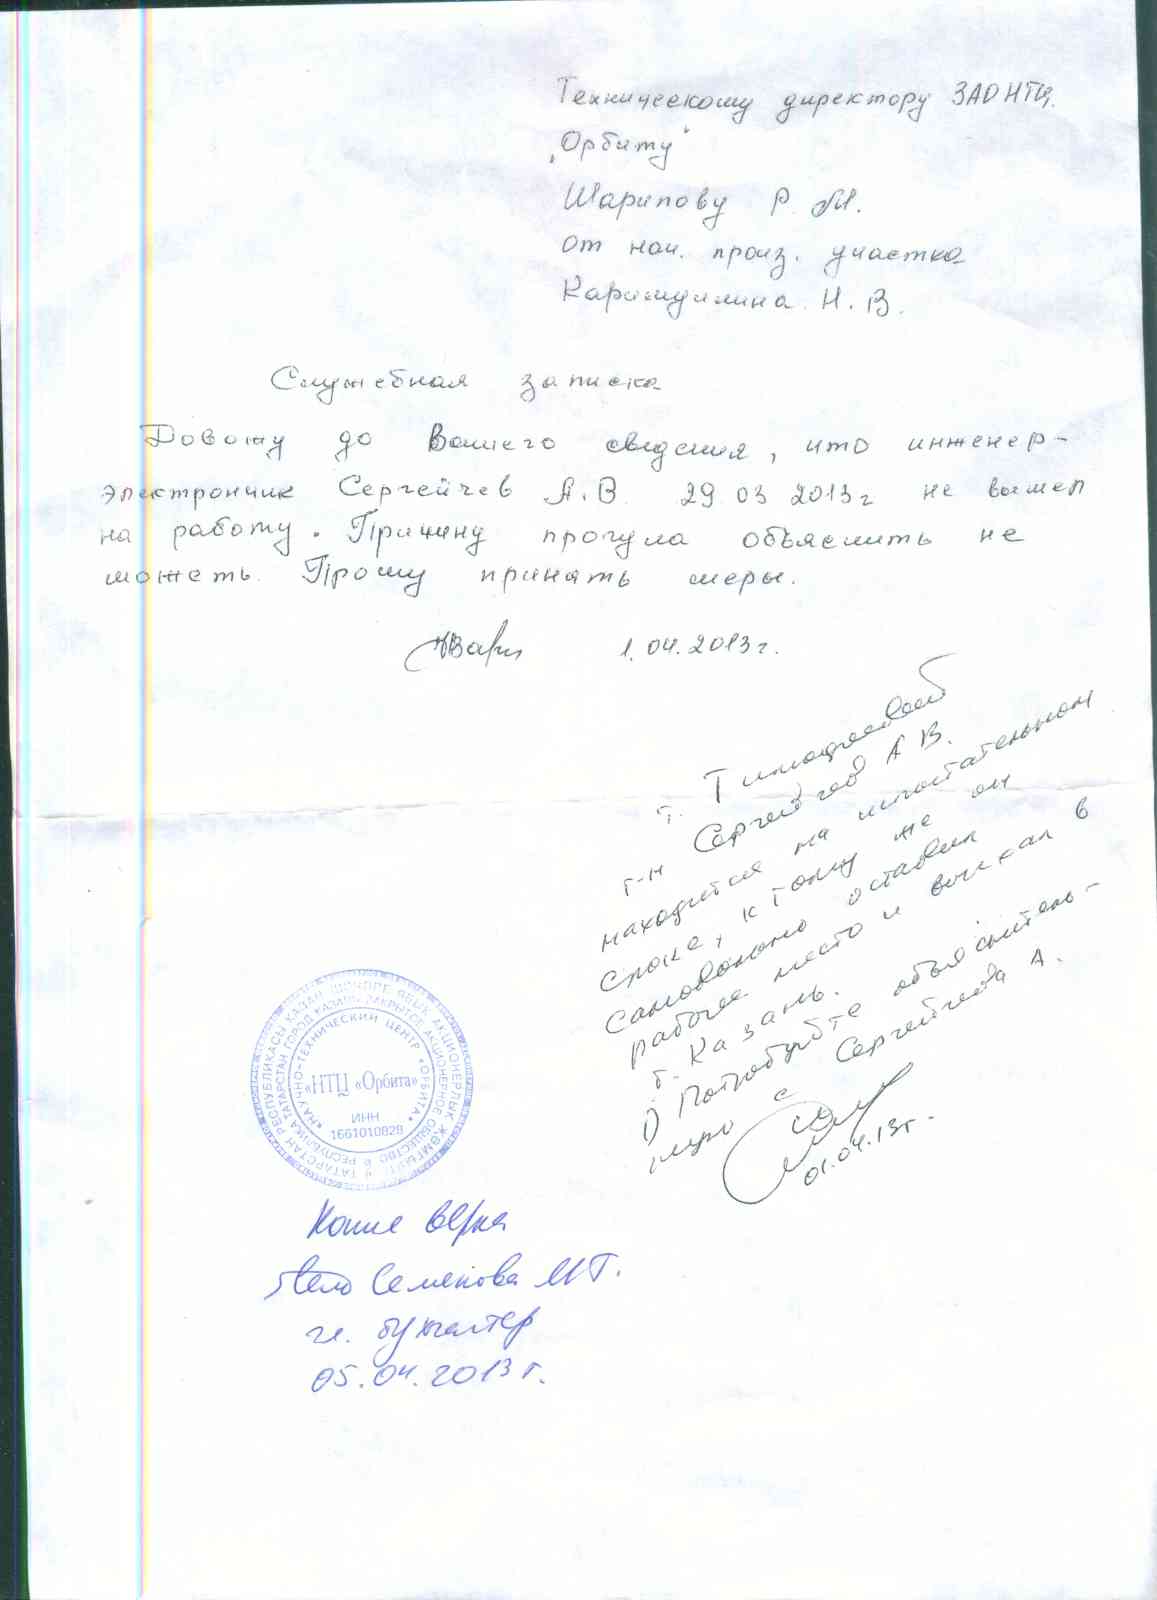 Техническому директору ЗАО НТЦ
„Орбиту"
Шарипову Р. М.
от нач. произ. участка
Каримуллина Н. В.
Служебная записка
Довожу до Вашего сведения, что инженер-
электрончик Сергейчев А.В. 29.03 2013г не вышел
на работу. Причину прогула объяснить не
можеть. Прошу принять меры.
1.04.2013г.
г. Тимофеевой
г-н Сергейчев А В.
находится на испытательном
сроке, к тому же он
самовольно оставил
рабочее место и выехал в
г. Казань.
1) Потребуйте объяснитель-
с Сергейчева А.
01.04.13г.
ТАТАРСТАН РЕСПУБЛИКАСЫ КАЗАН ШӘҺӘРЕ ЯБЫК АКЦИОНЕРЛЫК ҖӘМГЫЯТЕ
РЕСПУБЛИКА ТАТАРСТАН ГОРОД КАЗАНЬ ЗАКРЫТОЕ АКЦИОНЕРНОЕ ОБЩЕСТВО
«НАУЧНО-ТЕХНИЧЕСКИЙ ЦЕНТР «ОРБИТА»
«НТЦ «Орбита»
ИНН
1661010829
Копия верна
Семенова М.Г.
гл. бухгалтер
05.04.2013 г.